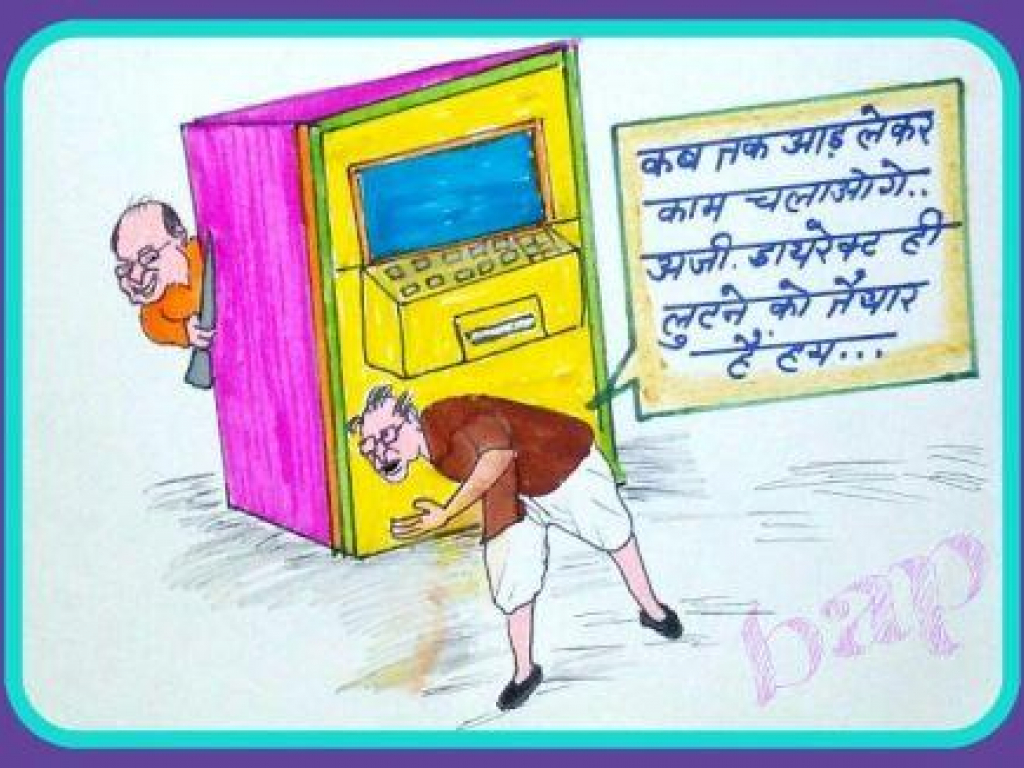 कब तक आड़ लेकर
काम चलाओगे..
अजी. डायरेक्ट ही
लुटने को तैयार
हैं हम...
bap